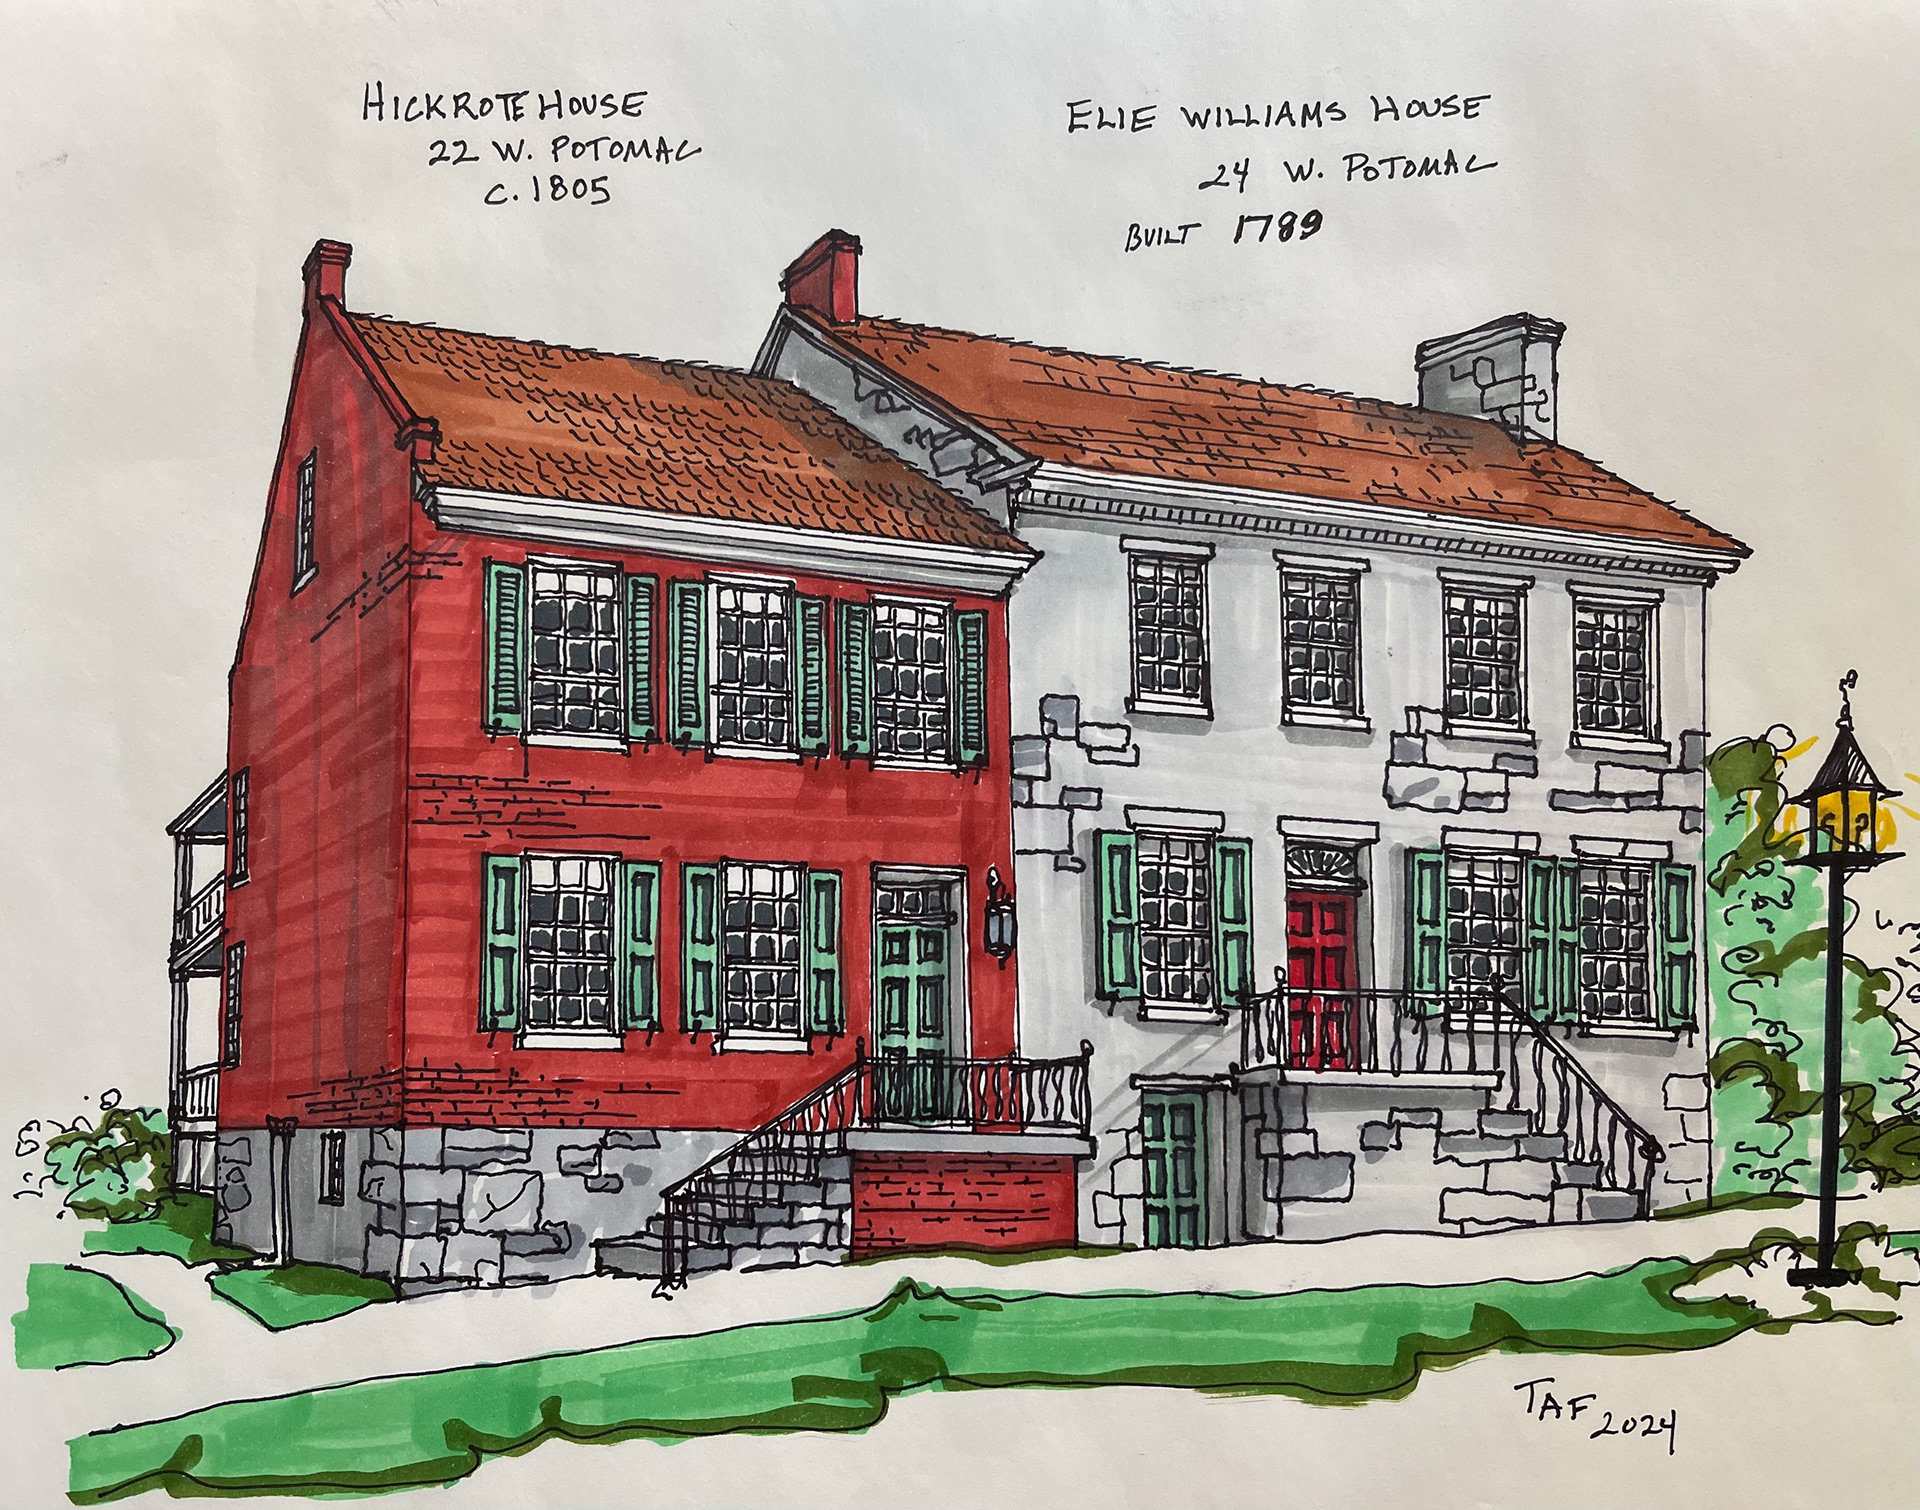 HICKROTE HOUSE
22 W. POTOMAC
C. 1805
ELIE WILLIAMS HOUSE
24 W. POTOMAC
BUILT 1789
TAF 2024